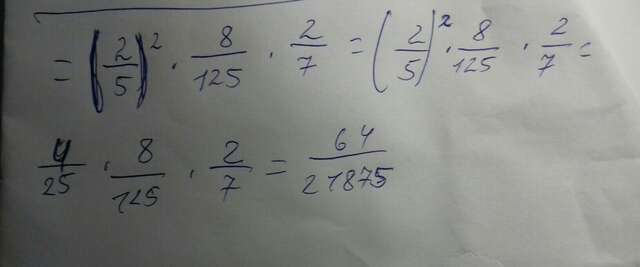 = (2/5)^2 · 8/125 · 2/7 = (2/5)^2 · 8/125 · 2/7 =
4/25 · 8/125 · 2/7 = 64/21875